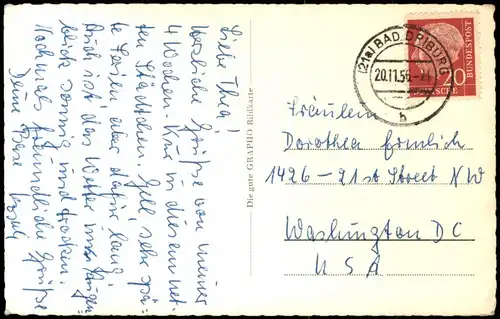 Liebe Thea!
Herzliche Grüße von meiner
4 Wochen-Kur in diesem net-
ten Städtchen. Gell, sehr spä-
te Ferien, aber dafür lang.
Auch ist das Wetter
blick sonnig und trocken.
Nochmals freundliche Grüße
Deine Base
Die gute GRAPHO Bildkarte
(21a) BAD DRIBURG
20.11.56
b
20
BUNDESPOST
SCHE
Fräulein
Dorothea
1426-21st Street NW
Washington DC
USA